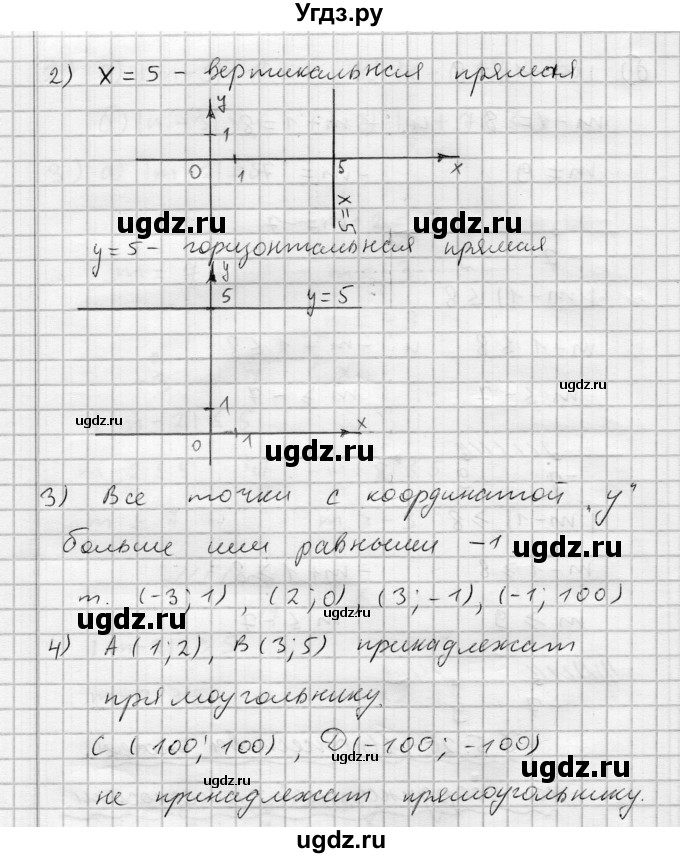 Угдз.ру
2) x = 5 - вертикальная прямая
y
1
0 1 5 x
x=5
ugdz.ru ugdz.ru
y = 5 - горизонтальная прямая
y
5 y=5
ugdz.ru
1
ugdz.ru
x
0 1
ugdz.ru
3) Все точки с координатой „y“
больше или равными -1
ugdz.ru
т. (-3; 1), (2; 0), (3; -1), (-1; 100)
ugdz.ru ugdz.ru
4) A (1; 2), B (3; 5) принадлежат
прямоугольнику.
C (100; 100), D (-100; -100)
ugdz.ru ugdz.ru
ugdz.ru ugdz.ru
не принадлежат прямоугольнику.
ugdz.ru
ugdz.ru